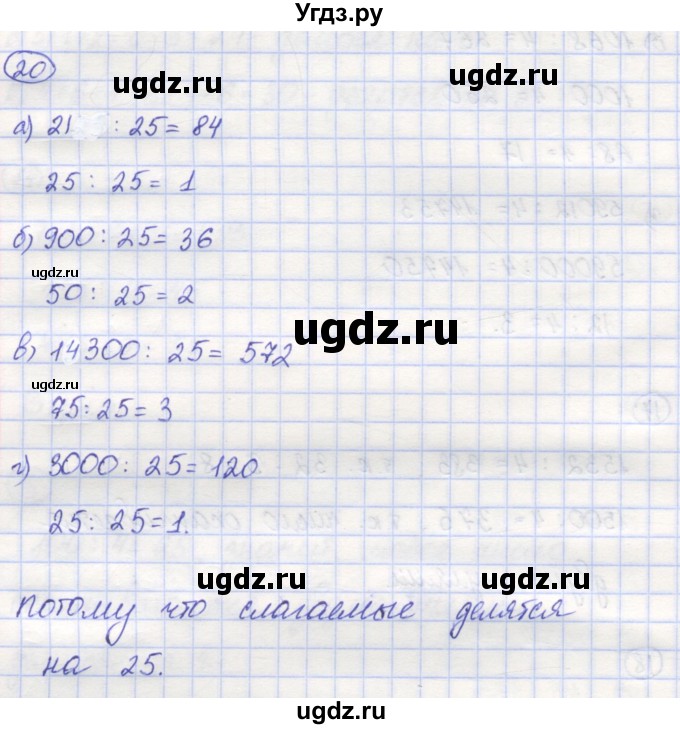 Угдз.ру
20
ugdz.ru
ugdz.ru
а) 21 : 25 = 84
25 : 25 = 1
б) 900 : 25 = 36
ugdz.ru
50 : 25 = 2
ugdz.ru
в) 14300 : 25 = 572
ugdz.ru
75 : 25 = 3
г) 3000 : 25 = 120
25 : 25 = 1.
ugdz.ru
ugdz.ru
потому что слагаемые делятся
на 25.
ugdz.ru